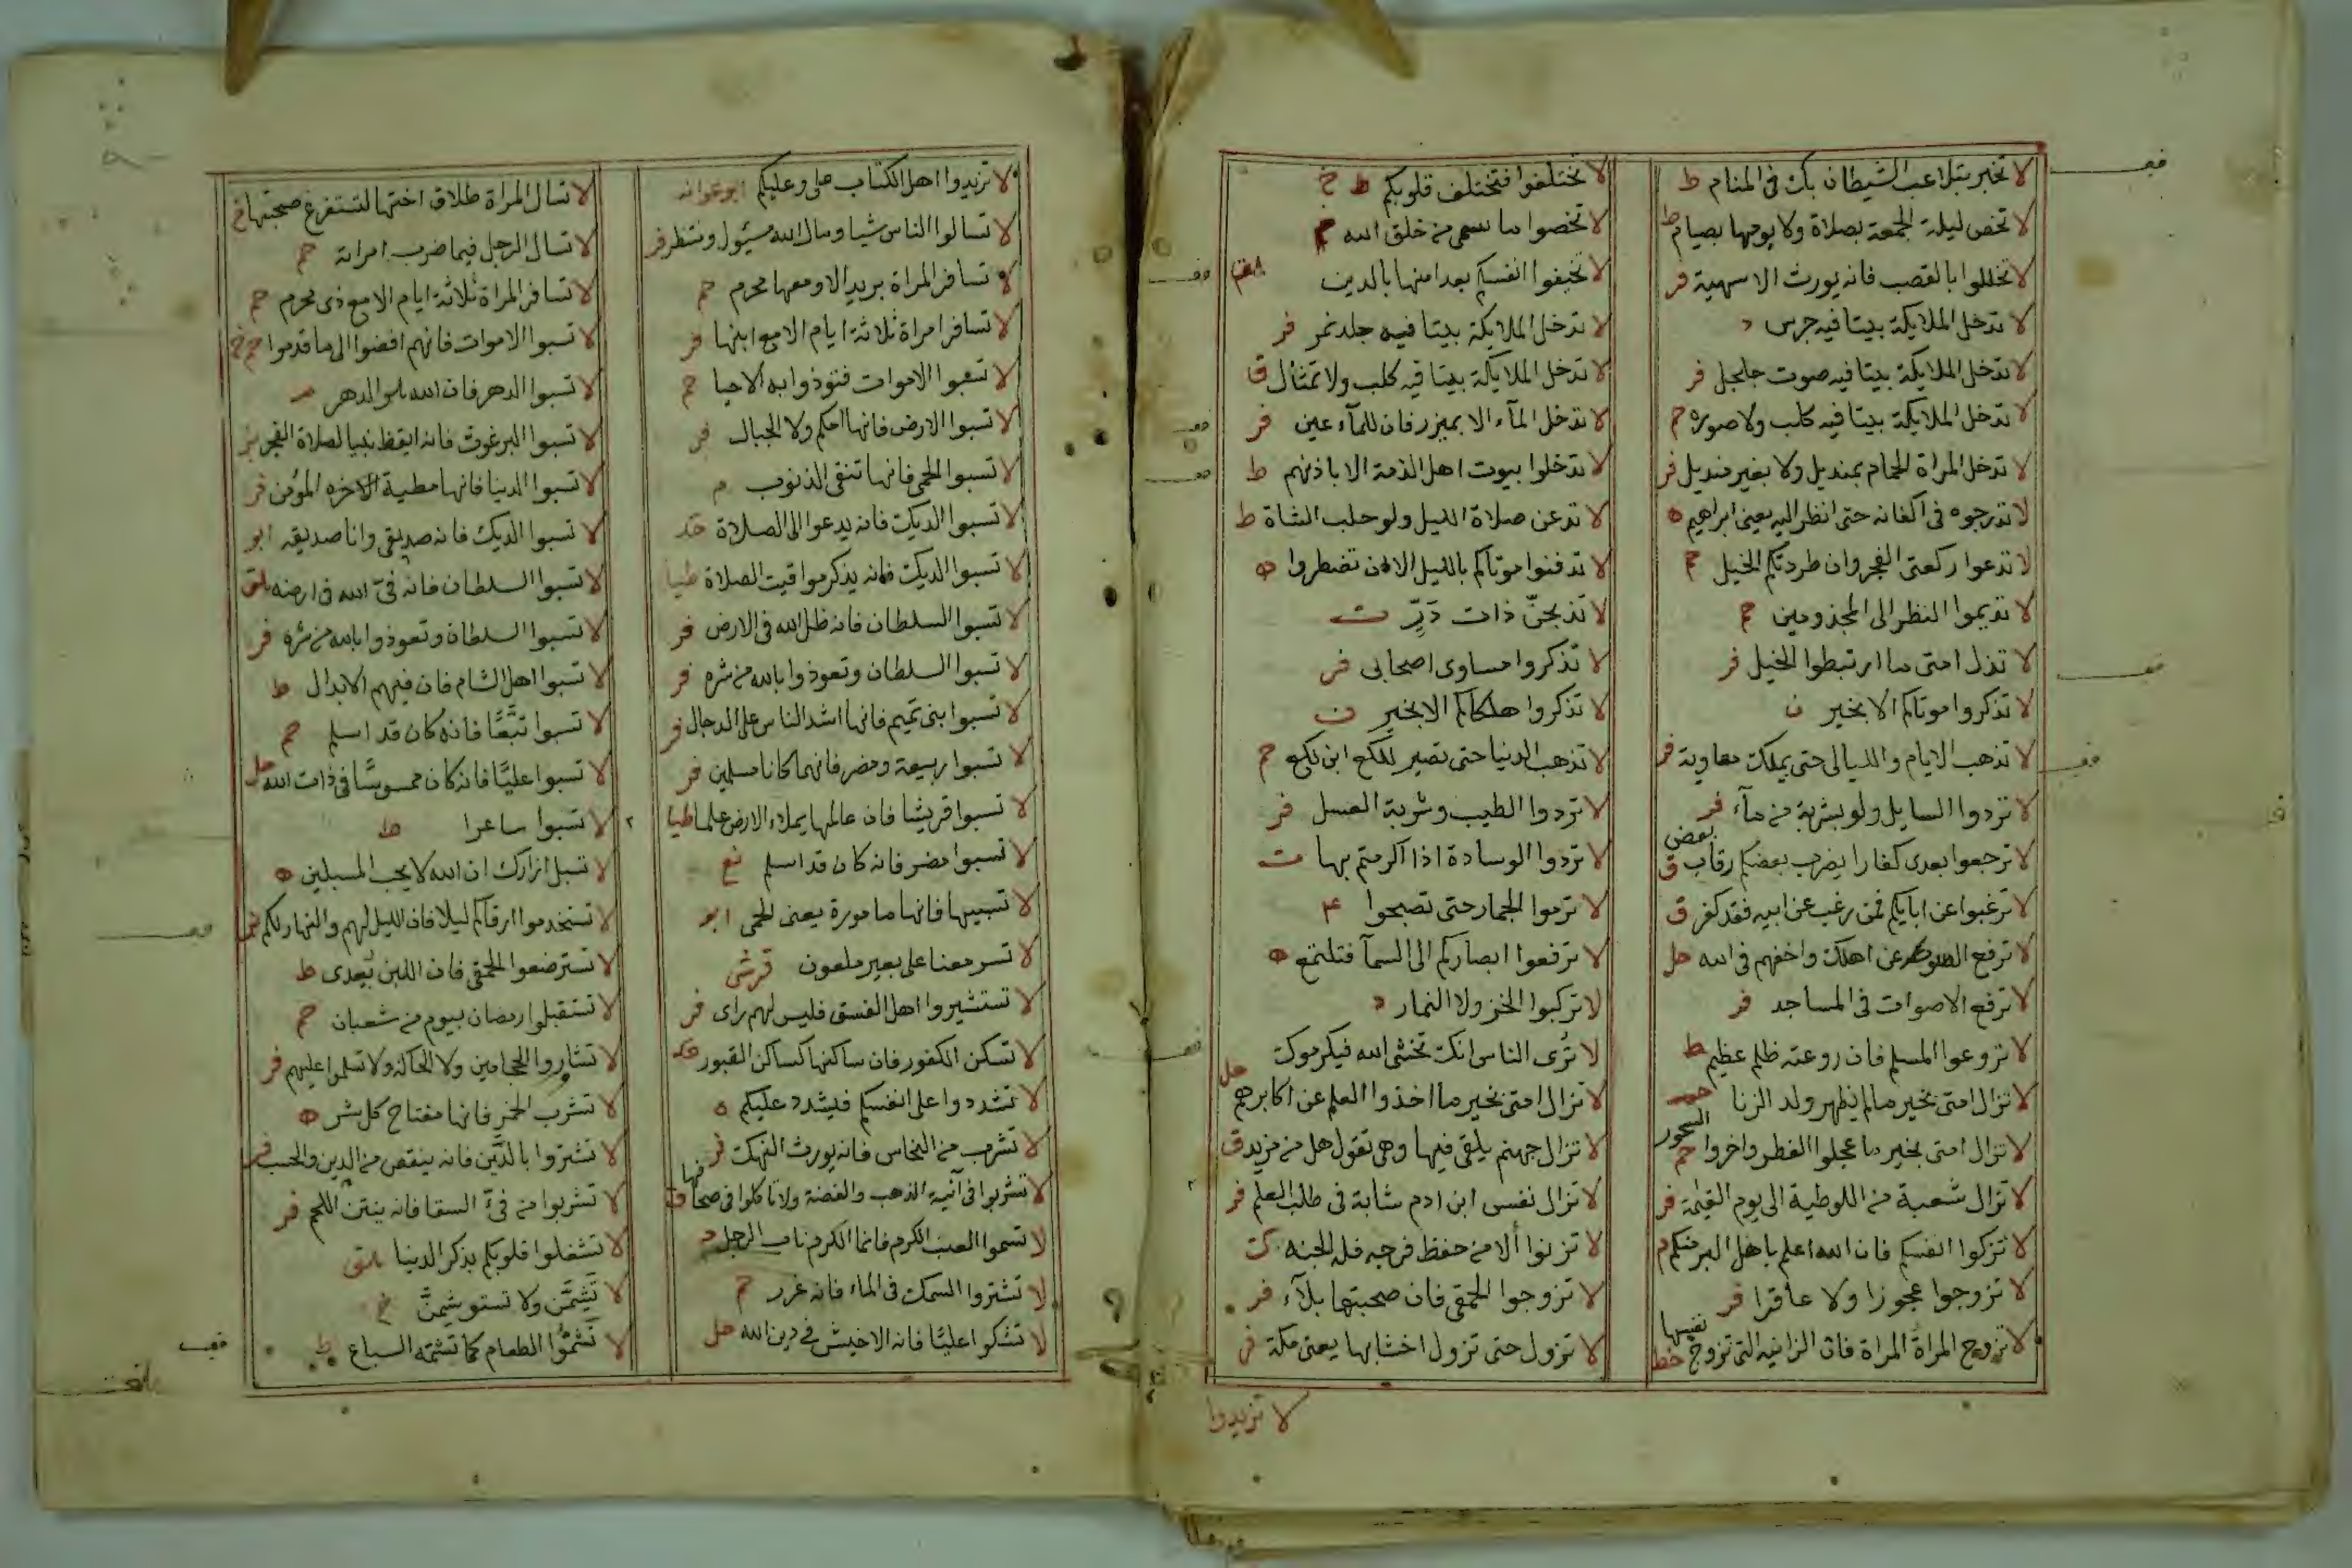 لا تخبر بتلاعب الشيطان بك في المنام ط
لا تخص ليلة الجمعة بصلاة ولا يومها بصيام ط
لا تخللوا بالقصب فانه يورث الاسهية فر
لا تدخل الملايكة بيتا فيه جرس د
لا تدخل الملايكة بيتا فيه صوت جلجل فر
لا تدخل الملايكة بيتا فيه كلب ولا صورة حم
لا تدخل المراة الحمام بمنديل ولا بغير منديل فر
لا تدرجوه في اكفانه حتى انظر اليه يعنى ابراهيم ه
لا تدعوا ركعتى الفجر وان طردتكم الخيل حم
لا تديموا النظر الى المجذومين حم
لا تذل امتى ما ارتبطوا الخيل فر
لا تذكروا موتاكم الا بخير ن
لا تذهب الايام والليالى حتى يملك معاوية فر
لا تردوا السايل ولو بشربة من مآء فر
لا ترجعوا بعدى كفارا يضرب بعضكم رقاب بعض ق
لا ترغبوا عن ابايكم فمن رغب عن ابيه فقد كفر ق
لا ترفع عن اهلك واخفهم في الله حل
لا ترفع الاصوات في المساجد فر
لا تروعوا المسلم فان روعته ظلم عظيم ط
لا تزال امتى بخير مالم يظهر ولد الزنا
لا تزال امتى بخير ما عجلوا الفطر واخروا السحور حم
لا تزال شعبة من اللوطية الى يوم القيمة فر
لا تزكوا انفسكم فان الله اعلم باهل البر منكم م
لا تزوجوا عجوزا ولا عاقرا فر
لا تزوج المراة المراة فان الزانيه التى تزوج نفسها خط
لا تختلفوا فتختلف قلوبكم ط خ
لا تخصوا ما من خلق الله
لا تخيفوا انفسكم بعد امنها بالدين
لا تدخل الملايكة بيتا فيه جلد نمر فر
لا تدخل الملايكة بيتا فيه كلب ولا تمثال ق
لا تدخل المآء الا بميزر فان للمآء عين فر
لا تدخلوا بيوت اهل الذمة الا باذنهم ط
لا تدعن صلاة الليل ولو حلب الشاة ط
لا تدفنوا موتاكم بالليل الا ان تضطروا ه
لا تذبحنّ ذات دَرِّ ت
لا تذكروا مساوى اصحابى فر
لا تذكروا هلكاكم الا بخير ن
لا تذهب الدنيا حتى تصير للكع ابن لكع حم
لا تردوا الطيب وشربة العسل فر
لا تردوا الوسادة اذا اكرمتم بها ت
لا ترموا الجمار حتى تصبحوا ٤
لا ترفعوا ابصاركم الى السمآ فتلتمع ه
لا تركبوا الخز ولا النمار د
لا تُرى الناس انك تخشى الله فيكرموك حل
لا تزال امتى بخير ما اخذوا العلم عن اكابرهم
لا تزال جهنم يلقى فيها وهى تقول هل من مزيد ق
لا تزال نفس ابن ادم شابة في طلب العلم فر
لا تزنوا ألا من حفظ فرجه فله الجنه ك
لا تزوجوا الحمقى فان صحبتها بلآء فر
لا تزول حتى تزول اخشابها يعنى مكة فر
لا تزيدوا
لا تزيدوا اهل الكتاب على وعليكم ابو عوانه
لا تسالوا الناس شيا ومال الله مسئول ومنتظر فر
لا تسافر المراة بريد الا ومعها محرم حم
لا تسافر امراة ثلاثة ايام الا مع ابنها فر
لا تسبوا الاموات فتوذوا به الاحيا حم
لا تسبوا الارض فانها امكم ولا الجبال فر
لا تسبوا الحمى فانها تنقى الذنوب م
لا تسبوا الديك فانه يدعوا الى الصلاة
لا تسبوا الديك فانه يذكر مواقيت الصلاة طيا
لا تسبوا السلطان فانه ظل الله في الارض فر
لا تسبوا السلطان وتعوذوا بالله من شره فر
لا تسبوا بنى تميم فانها اشد الناس على الدجال فر
لا تسبوا ربيعة ومضر فانهما كانا مسلمين فر
لا تسبوا قريشا فان عالمها يملاء الارض علما طيا
لا تسبوا مضر فانه كان قد اسلم
لا تسبيها فانها مامورة يعنى الحمى ابو
لا تسر معنا على بعير ملعون قرشى
لا تستشيروا اهل الفسق فليس لهم راى فر
لا تسكن الكفور فان ساكنها كساكن القبور
لا تشددوا على انفسكم فيشدد عليكم ه
لا تشرب من النحاس فانه يورث النهكت فر
لا تشربوا في آنية الذهب والفضة ولا تاكلوا في صحافها ق
لا تسموا العنب الكرم فانما الكرم الرجل د
لا تشتروا السمك في الماء فانه غرر حم
لا تشكوا عليّا فانه الاخيش في دين الله حل
لا تسال المراة طلاق اختها لتستفرغ صحبتها خ
لا تسال الرجل فيما ضرب امراته حم
لا تسافر المراة ثلاثة ايام الا مع ذى محرم حم
لا تسبوا الاموات فانهم افضوا الى ما قدموا حم خ
لا تسبوا الدهر فان الله هو الدهر
لا تسبوا البرغوث فانه ايقظ نبيا لصلاة الفجر
لا تسبوا الدنيا فانها مطية الاخره المؤمن فر
لا تسبوا الديك فانه صديقى وانا صديقه ابو
لا تسبوا السلطان فانه فىّ الله في ارضه
لا تسبوا السلطان وتعوذوا بالله من شره فر
لا تسبوا اهل الشام فان فيهم الابدال ط
لا تسبوا تبَّعًا فانه كان قد اسلم حم
لا تسبوا عليّا فانه كان ممسوسًّا في ذات الله حل
لا تسبوا ساعرا ط
لا تسبل ازارك ان الله لا يحب المسبلين ه
لا تستخدموا ارقاكم ليلا فان الليل لهم والنهار لكم
لا تسترضعوا الحمقى فان اللبن يُعدى ط
لا تستقبلوا رمضان بيوم من شعبان حم
لا تشاوروا الحجامين ولا الحاكة ولا تسلموا عليهم فر
لا تشرب الخمر فانها مفتاح كل شر ه
لا تشتروا بالدَّين فانه ينقص من الدين والحسب فر
لا تشربوا من فىّ السقا فانه ينتن اللحم فر
لا تشغلوا قلوبكم بذكر الدنيا
لا تَشِمَّن ولا تستوشمنّ خ
لا تشمُّوا الطعام كما تشمّه السباع ط